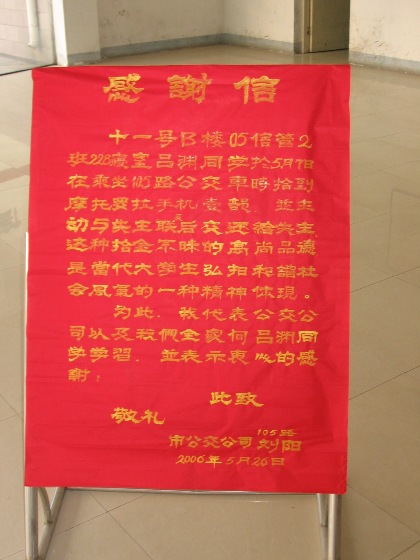 感謝信
十一号B楼05信管2
班228寢室吕渊同学於5月17日
在乘坐105路公交車時拾到
摩托罗拉手机壹部、並主
动与失主联系后交还給失主,
这种拾金不昧的高尚品德
是當代大学生弘扬和諧社
会風氣的一种精神体現。
为此、我代表公交公
司以及我們全家向吕渊同
学学習、並表示衷心的感
謝!
此致
敬礼
105路
市公交公司刘阳
2006年5月26日